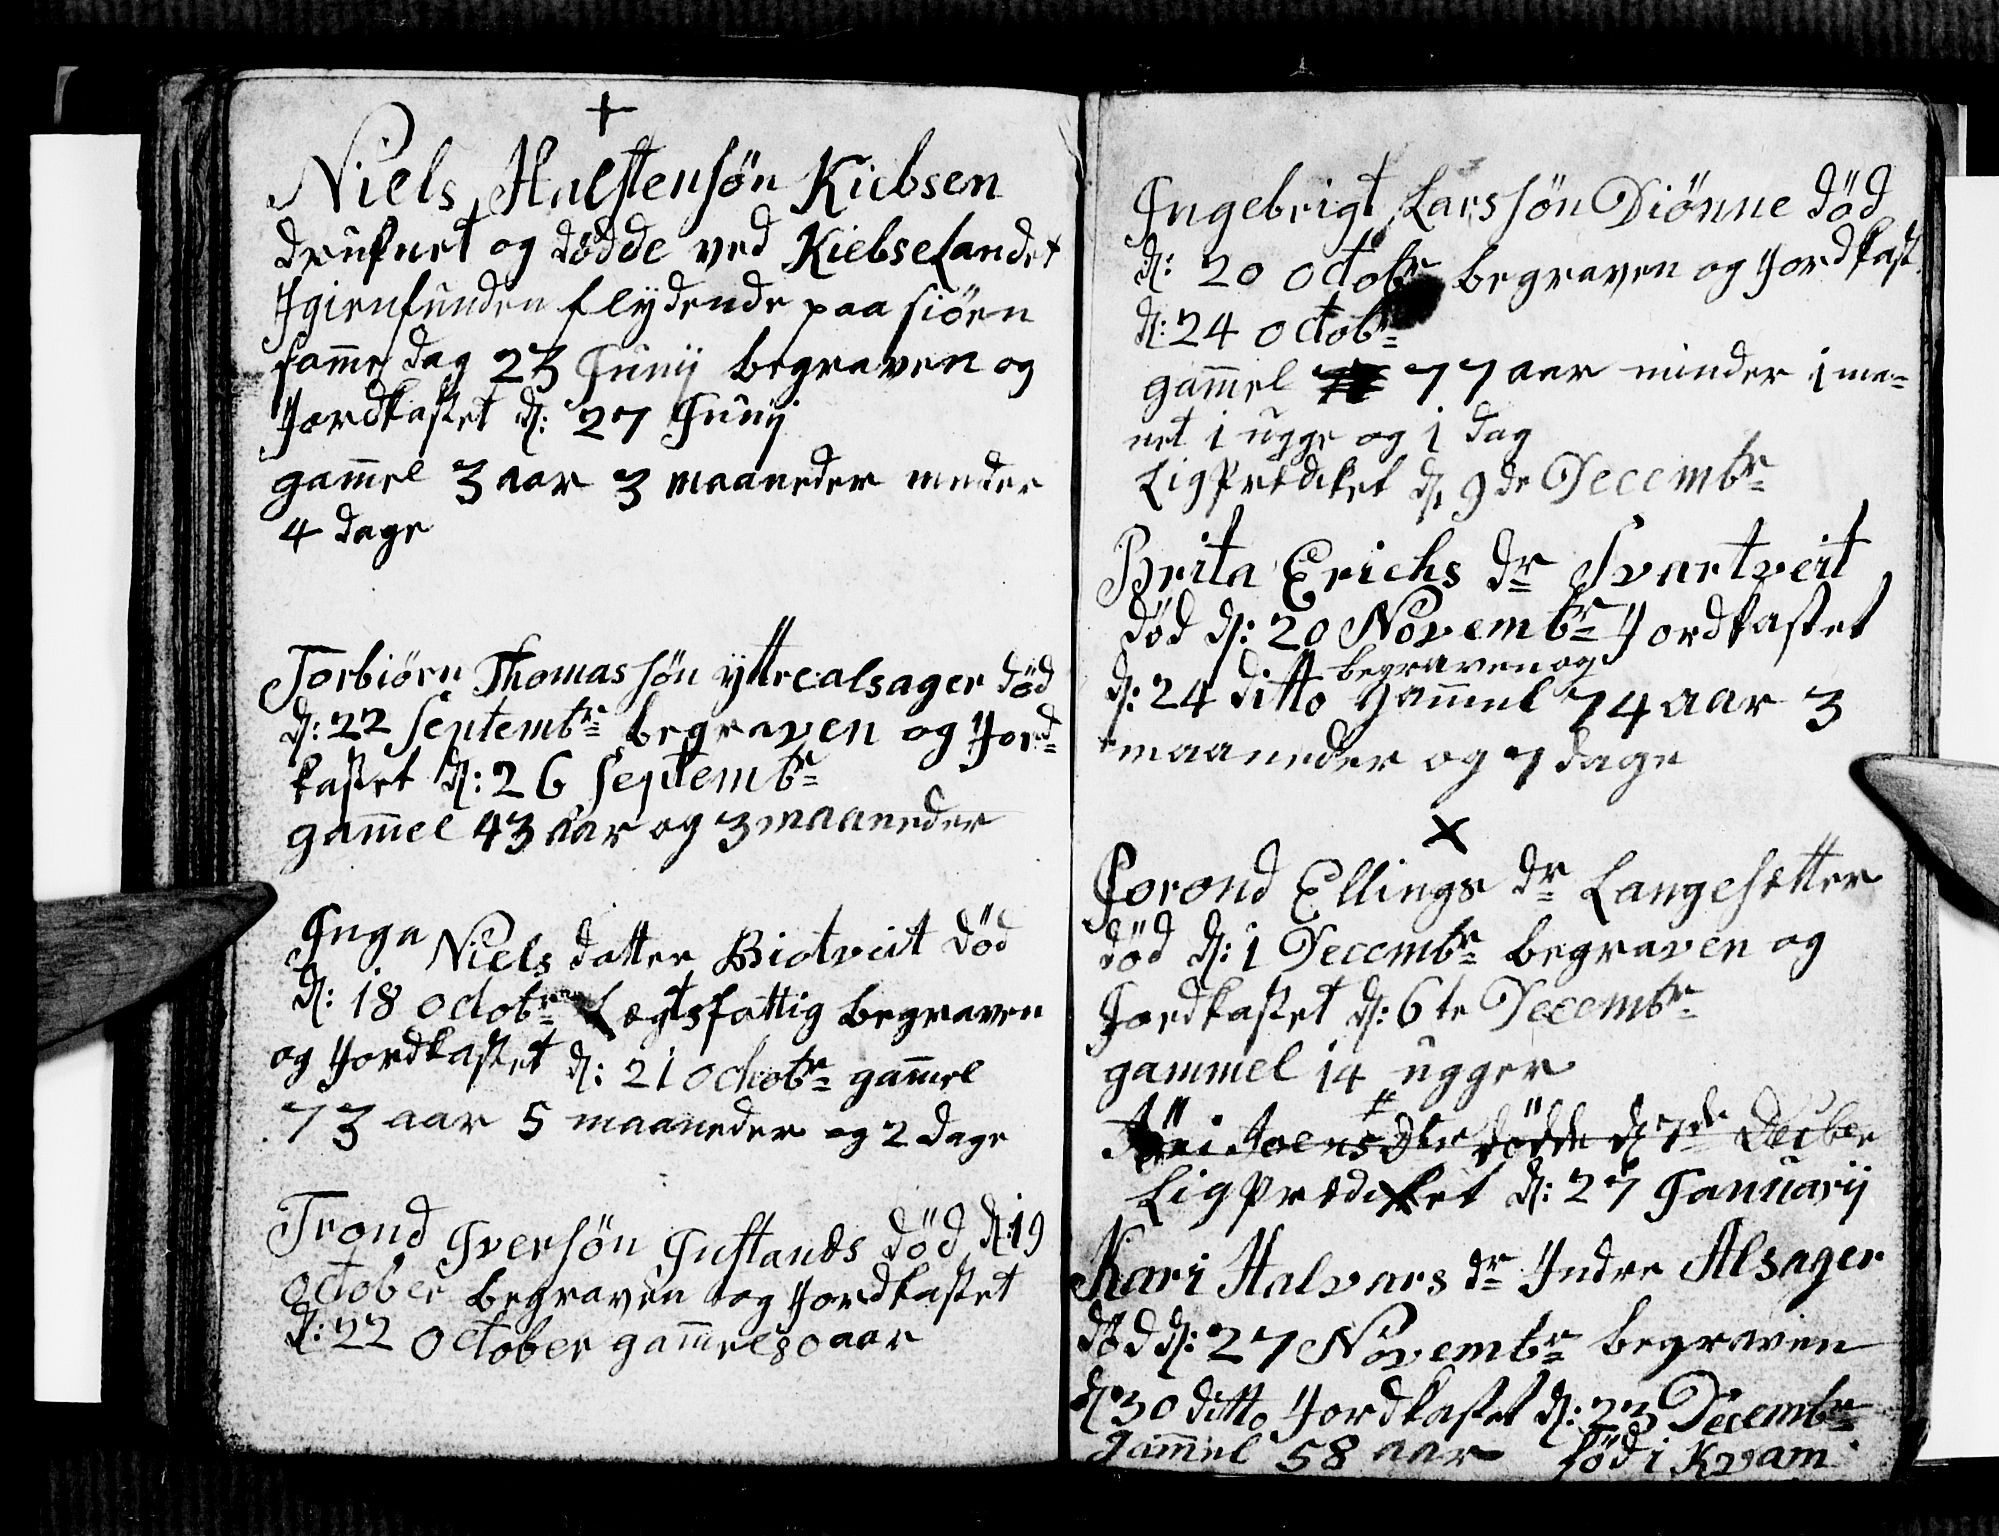 +
Niels Halstensøn Kiebsen
druknet og dødde ved Kiebselandet
Igienfunden flydende paa siøen
samme dag 23 Junij begraven og
Jordkastet d: 27 Junij
gam̄el 3 aar 3 maaneder minder
4 dage
Torbiørn Thomassøn yttrealsager död
d: 22 Septembr begraven og Jord-
kastet d: 26 Septembr
gam̄el 43 aar og 3 maaneder
Inga Niels datter Biotveit död
d: 18 octobr Legtsfattig begraven
og Jordkastet d: 21 octobr gam̄el
73 aar 5 maaneder og 2 dage
Trond Iversøn Gustands död d: 19
october begraven og Jordkastet
d: 22 october gam̄el 80 aar
Ingebrigt Larssøn Diönne död
d: 20 octobr begraven og Jordkast
d: 24 octobr
gam̄el 77 aar minder 1 ma-
net 1 ugge og 1 dag
Ligprediket d. 9de Decembr
Brita Erichs dr Svartveit
död d: 20 Novembr Jordkastet
begraven og
d: 24 ditto gam̄el 74 aar 3
maaneder og 7 dage
x
Gorond Ellings dr Langesetter
död d: 1 Decembr begraven og
Jordkastet d: 6te Decembr
gammel 14 ugger
Joensdtr dödde d 7de Decber
Ligprediket d: 27 Januarij
Kari Halvars dr Indre Alsager
död d: 27 Novembr begraven
d 30 ditto Jordkastet d: 23 Decembr
gam̄el 58 aar föd i Kvam